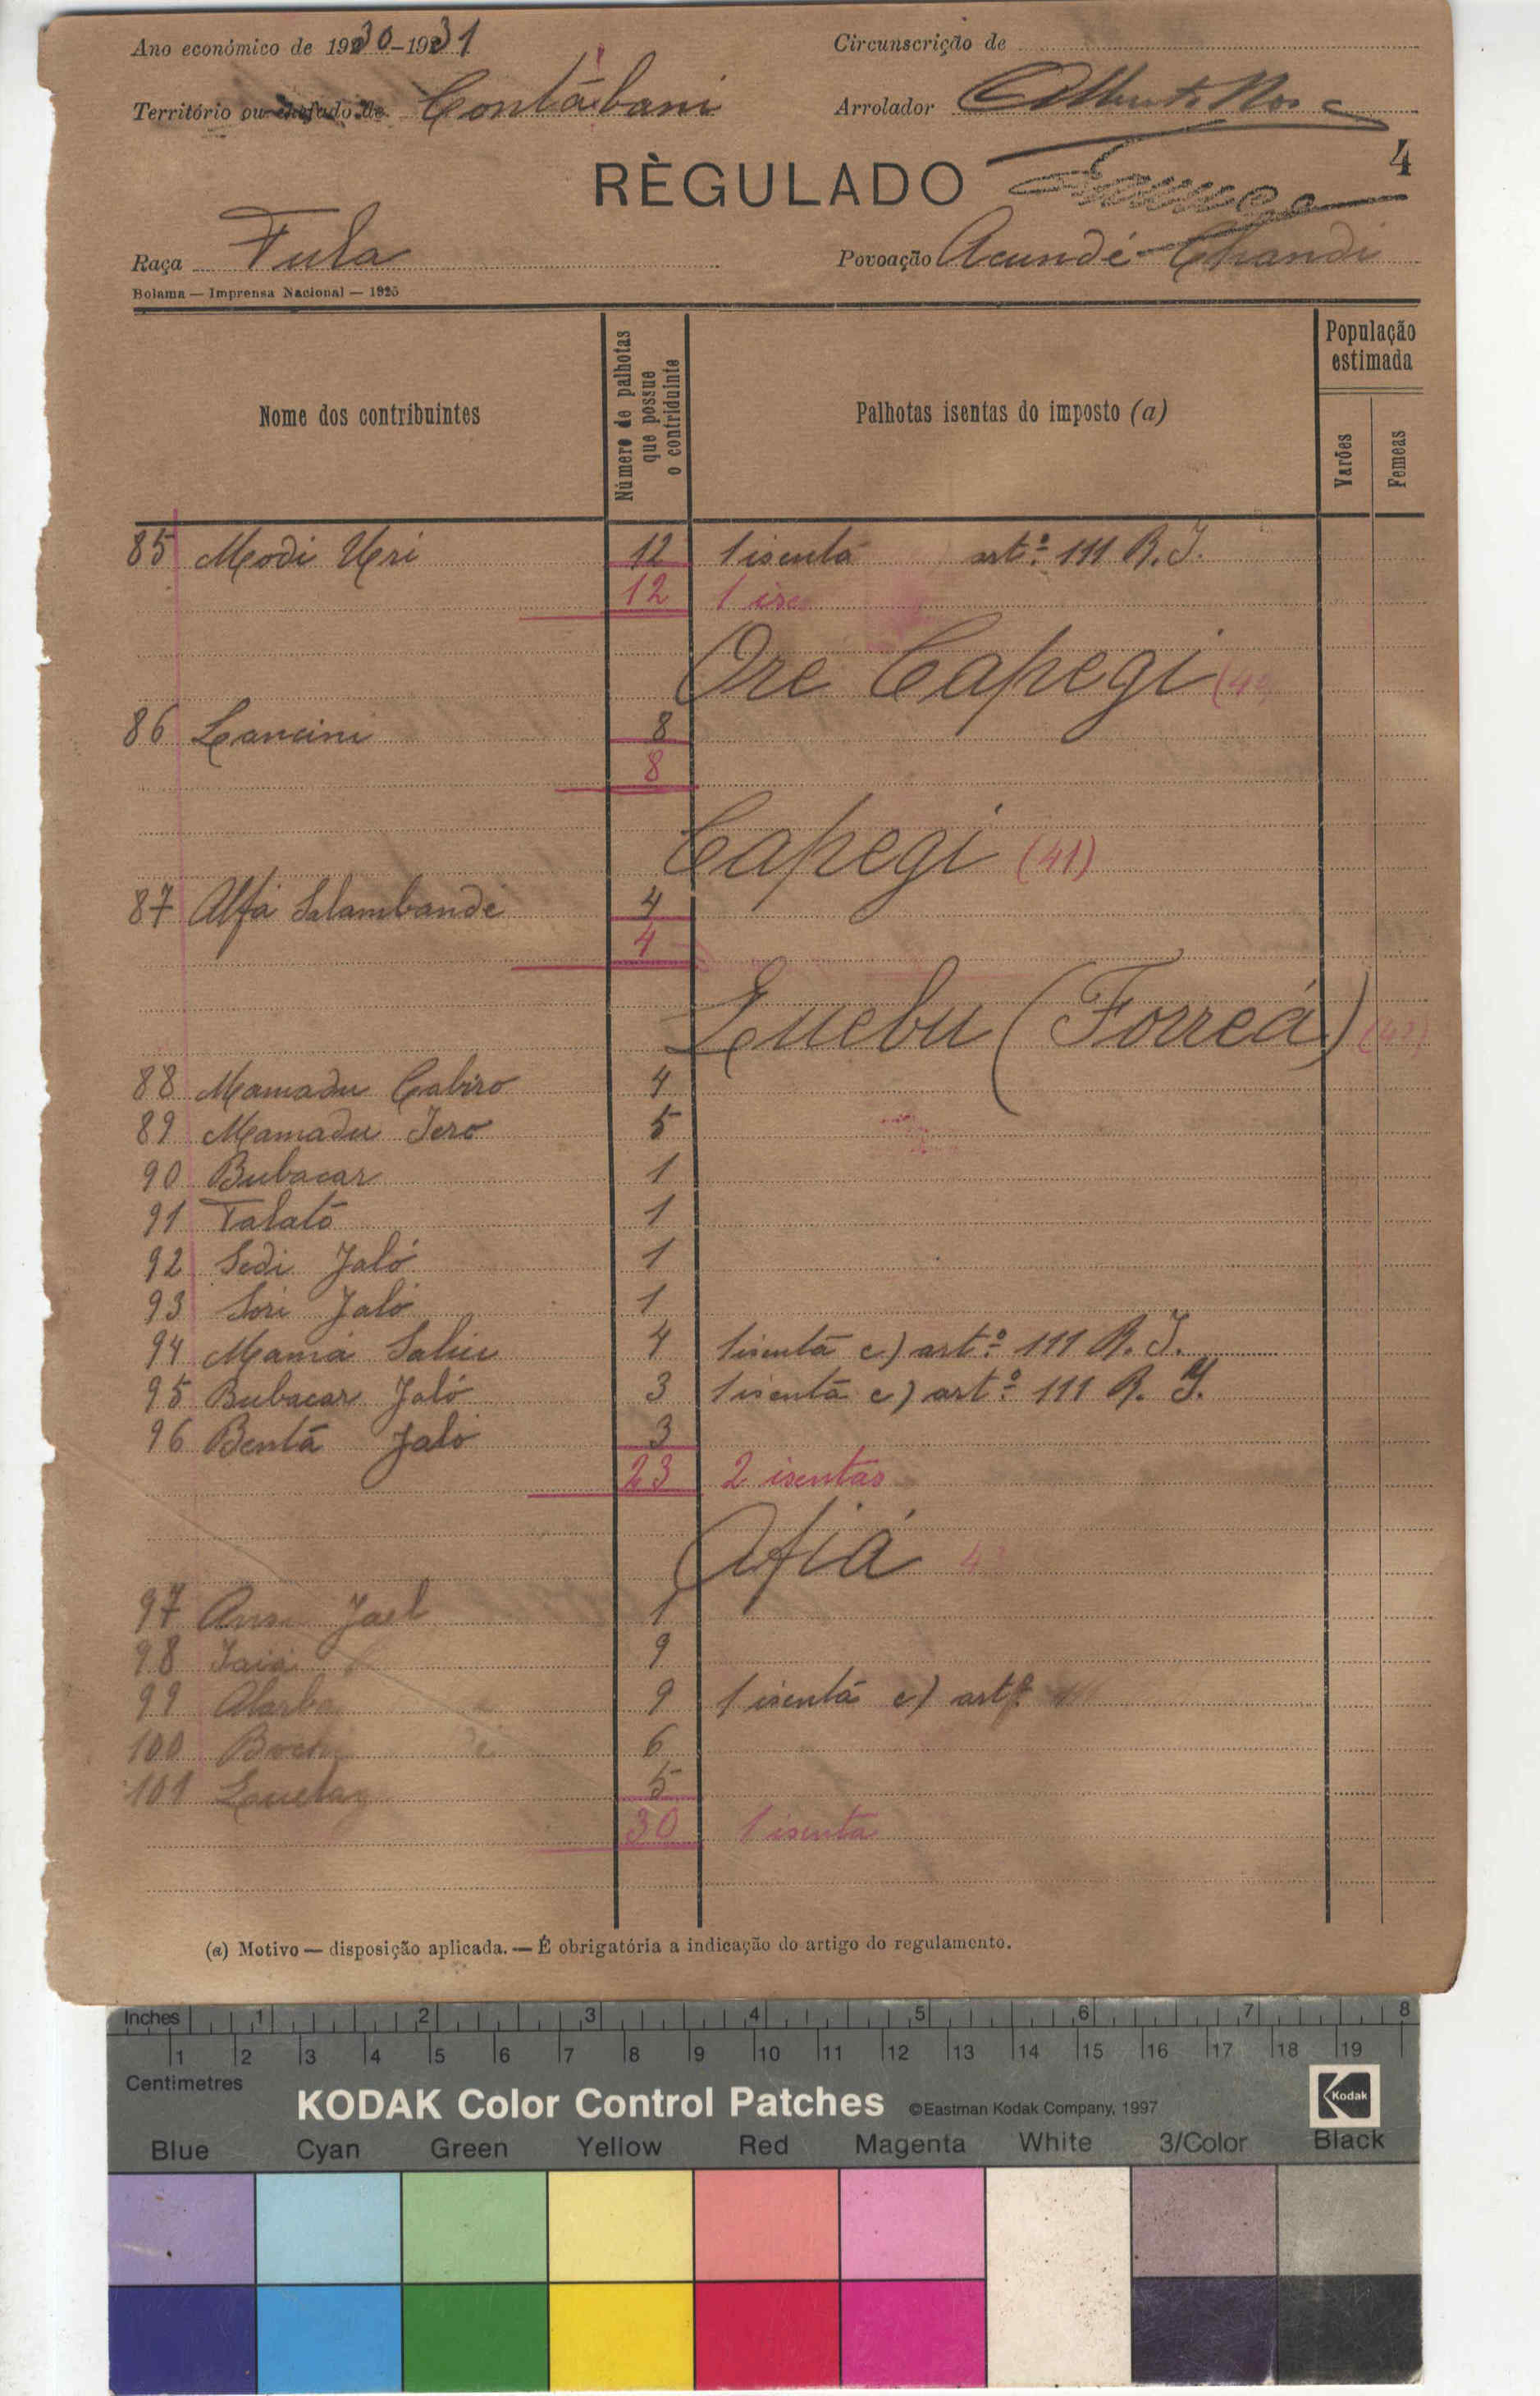 Ano económico de 1930-1931
Circunscrição de
Território ou chefado de Contábani
Arrolador Alberto
RÈGULADO
4
Raça Fula
Povoação Acundé Chandi
Bolama — Imprensa Nacional — 1925
Nome dos contribuintes
Número de palhotas que possue o contriduinte
Palhotas isentas do imposto (a)
População estimada
Varões
Femeas
85 Modi Uri 12 1 isenta artº 111 R. I.
12 1 ise
Ore Capegi (4
86 Lancini 8
8
Capegi (41)
87 Alfá Salambandé 4
4
Luebu (Forreá) (42)
88 Mamadu Cabiro 4
89 Mamadu Jero 5
90 Bubacar 1
91 Talató 1
92 Sedi Jaló 1
93 Sori Jaló 1
94 Mamá Saliu 4 1 isenta c) artº 111 R. I.
95 Bubacar Jaló 3 1 isenta c) artº 111 R. I.
96 Bentá Jaló 3
23 2 isentas
Afiá 43
97 Jael 1
98 Iaiá 9
99 Alarba 9 1 isenta c) artº
100 6
101 5
30 1 isenta
(a) Motivo — disposição aplicada. — É obrigatória a indicação do artigo do regulamento.
Inches 1 2 3 4 5 6 7 8
1 2 3 4 5 6 7 8 9 10 11 12 13 14 15 16 17 18 19
Centimetres
KODAK Color Control Patches ©Eastman Kodak Company, 1997
Kodak
Blue Cyan Green Yellow Red Magenta White 3/Color Black